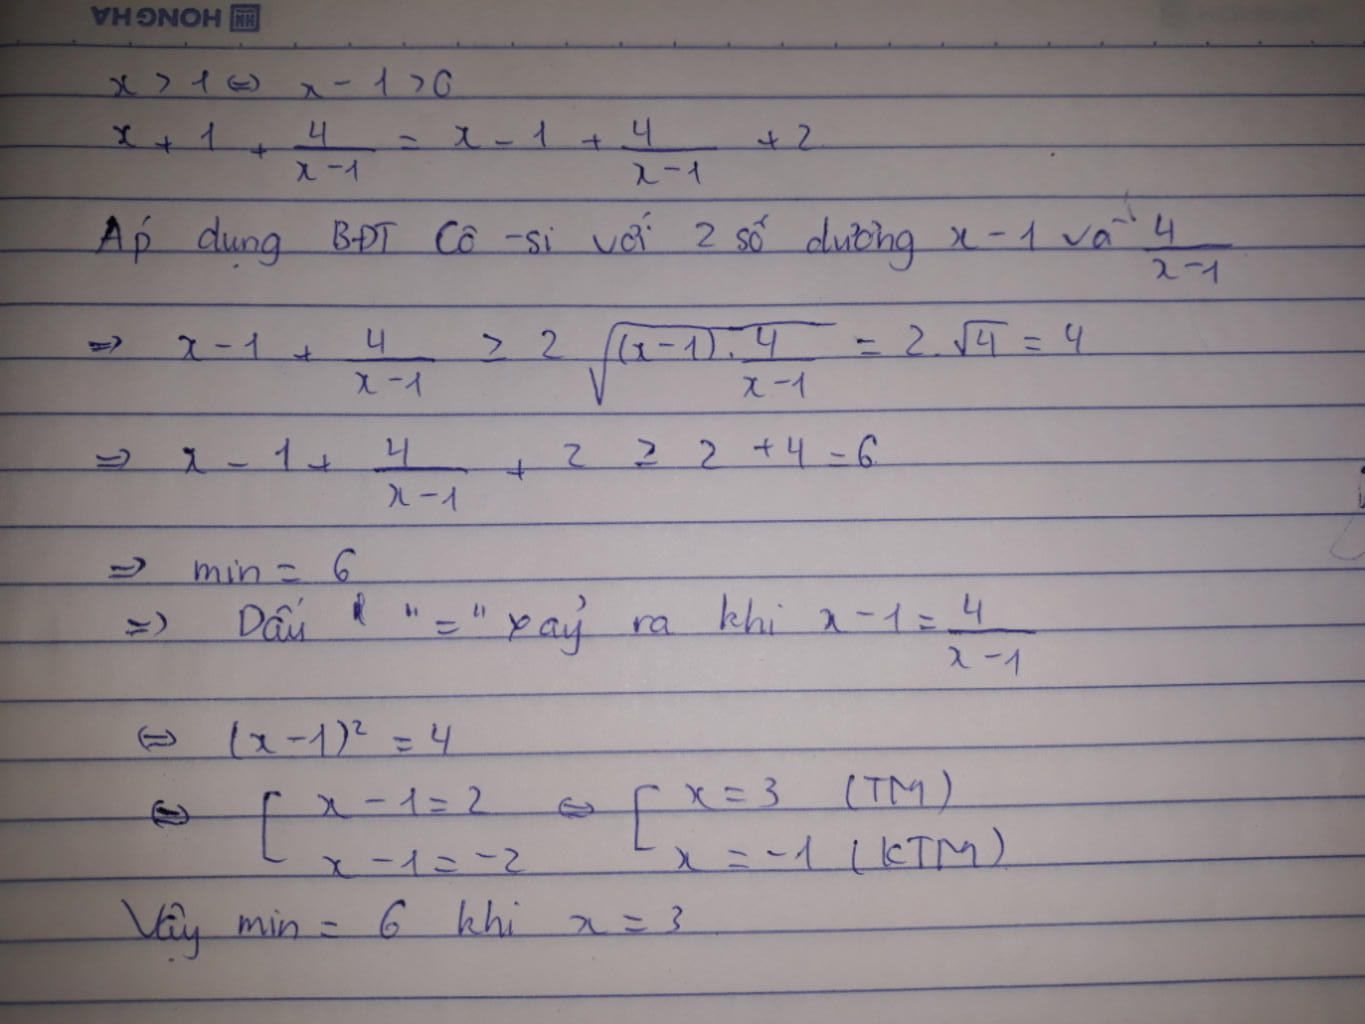 HONG HA HH
x > 1 ⇔ x - 1 > 0
x + 1 + 4/(x-1) = x - 1 + 4/(x-1) + 2
Áp dụng BĐT Cô-si với 2 số dương x - 1 và 4/(x-1)
⇒ x - 1 + 4/(x-1) ≥ 2 √((x-1).4/(x-1)) = 2.√4 = 4
⇒ x - 1 + 4/(x-1) + 2 ≥ 2 + 4 = 6
⇒ min = 6
⇒ Dấu "=" xảy ra khi x - 1 = 4/(x-1)
⇔ (x - 1)² = 4
⇔ [ x - 1 = 2 ⇔ [ x = 3 (TM)
x - 1 = -2 x = -1 (KTM)
Vậy min = 6 khi x = 3